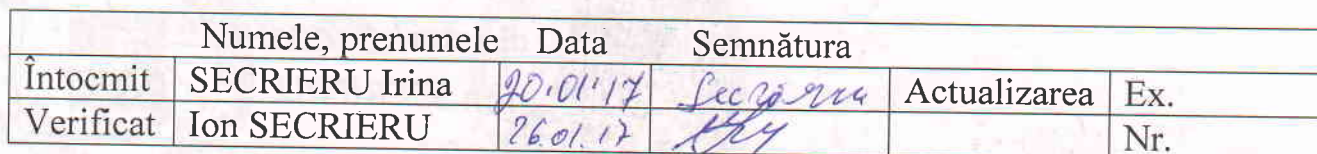 Numele, prenumele Data Semnătura
Întocmit SECRIERU Irina 20.01.17 Actualizarea Ex.
Verificat Ion SECRIERU 26.01.17 Nr.